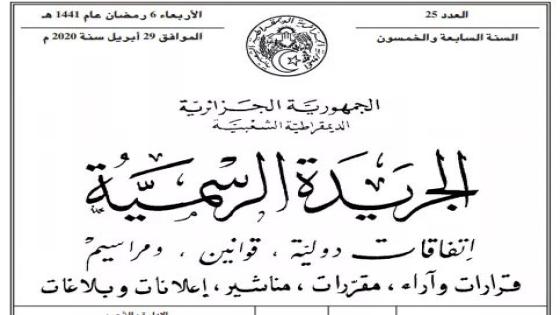 العدد 25
الأربعاء 6 رمضان عام 1441 هـ
السنة السابعة والخمسون
الموافق 29 أبريل سنة 2020 م
الجمهورية الجزائرية
الديمقراطية الشعبية
الجريدة الرسمية
اتفاقات دولية ، قوانين ، ومراسيم
قرارات وآراء ، مقررات ، مناشير ، إعلانات وبلاغات